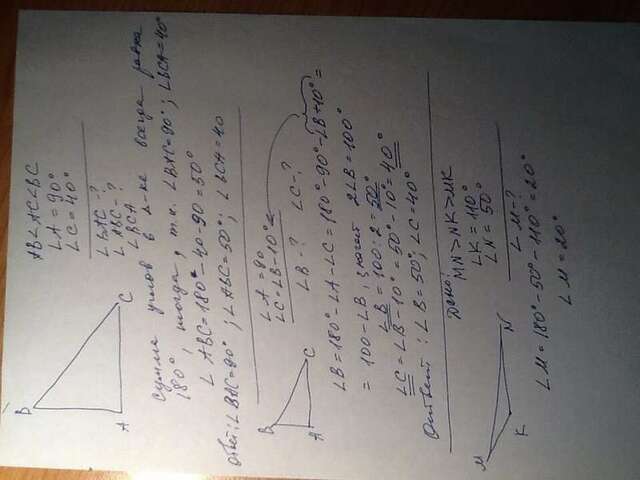 B
A
C
AB<AC<BC
∠A = 90°
∠C = 40°
∠BAC - ?
∠ABC - ?
∠BCA
Сумма углов в Δ-ке всегда равна
180°, тогда, т.к. ∠BAC=90°; ∠BCA=40°
∠ABC=180°-40-90=50°
Ответ: ∠BAC=90°; ∠ABC=50°; ∠BCA=40
B
A
C
∠A = 90
∠C=∠B-10°
∠B - ? ∠C - ?
∠B=180°-∠A-∠C=180°-90°-∠B+10°=
=100-∠B; значит 2∠B=100°
∠B=100:2=50°
∠C=∠B-10°=50°-10°=40°
Ответ: ∠B=50°; ∠C=40°
M
K
N
Дано:
MN>NK>MK
∠K = 110°
∠N = 50°
∠M - ?
∠M=180°-50°-110°=20°
∠M=20°